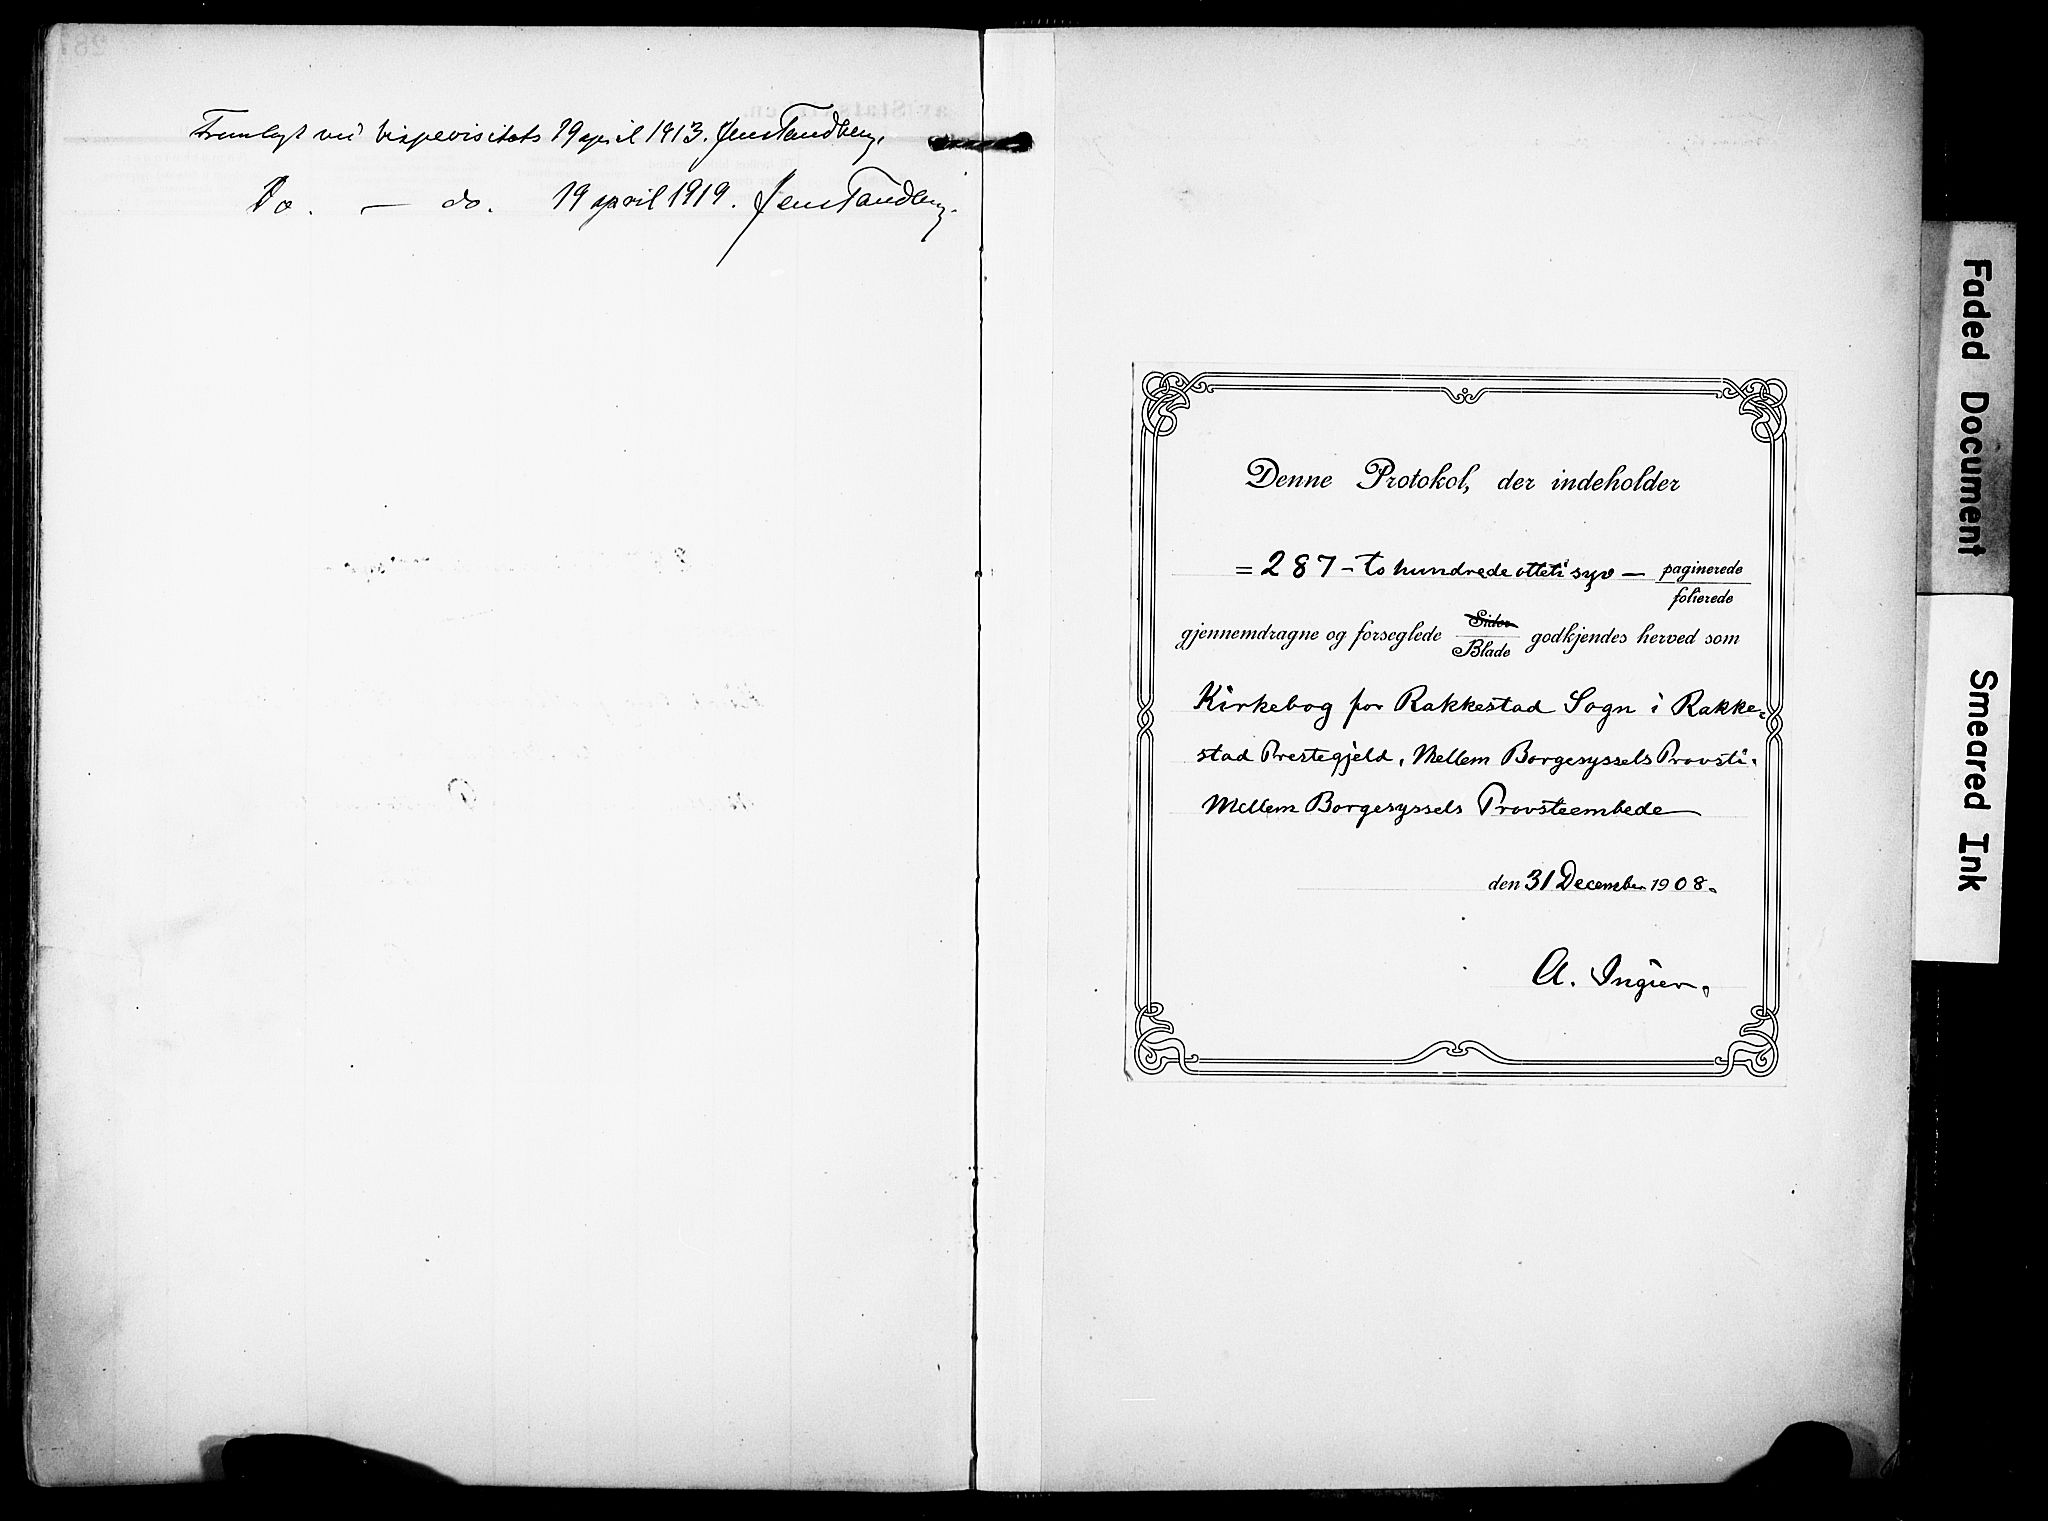 Fremlagt ved bispevisitats 19 april 1913. Jens Tandberg.
Do. — do. 19 april 1919. Jens Tandberg.
Denne Protokol, der indeholder
= 287 - to hundrede otteti syv — paginerede
folierede
gjennemdragne og forseglede Sider godkjendes herved som
Blade
Kirkebog for Rakkestad Sogn i Rakke-
stad Prestegjeld, Mellem Borgesyssels Provsti.
Mellem Borgesyssels Provsteembede
den 31 December 1908.
A. Ingier.
Faded Document
Smeared Ink